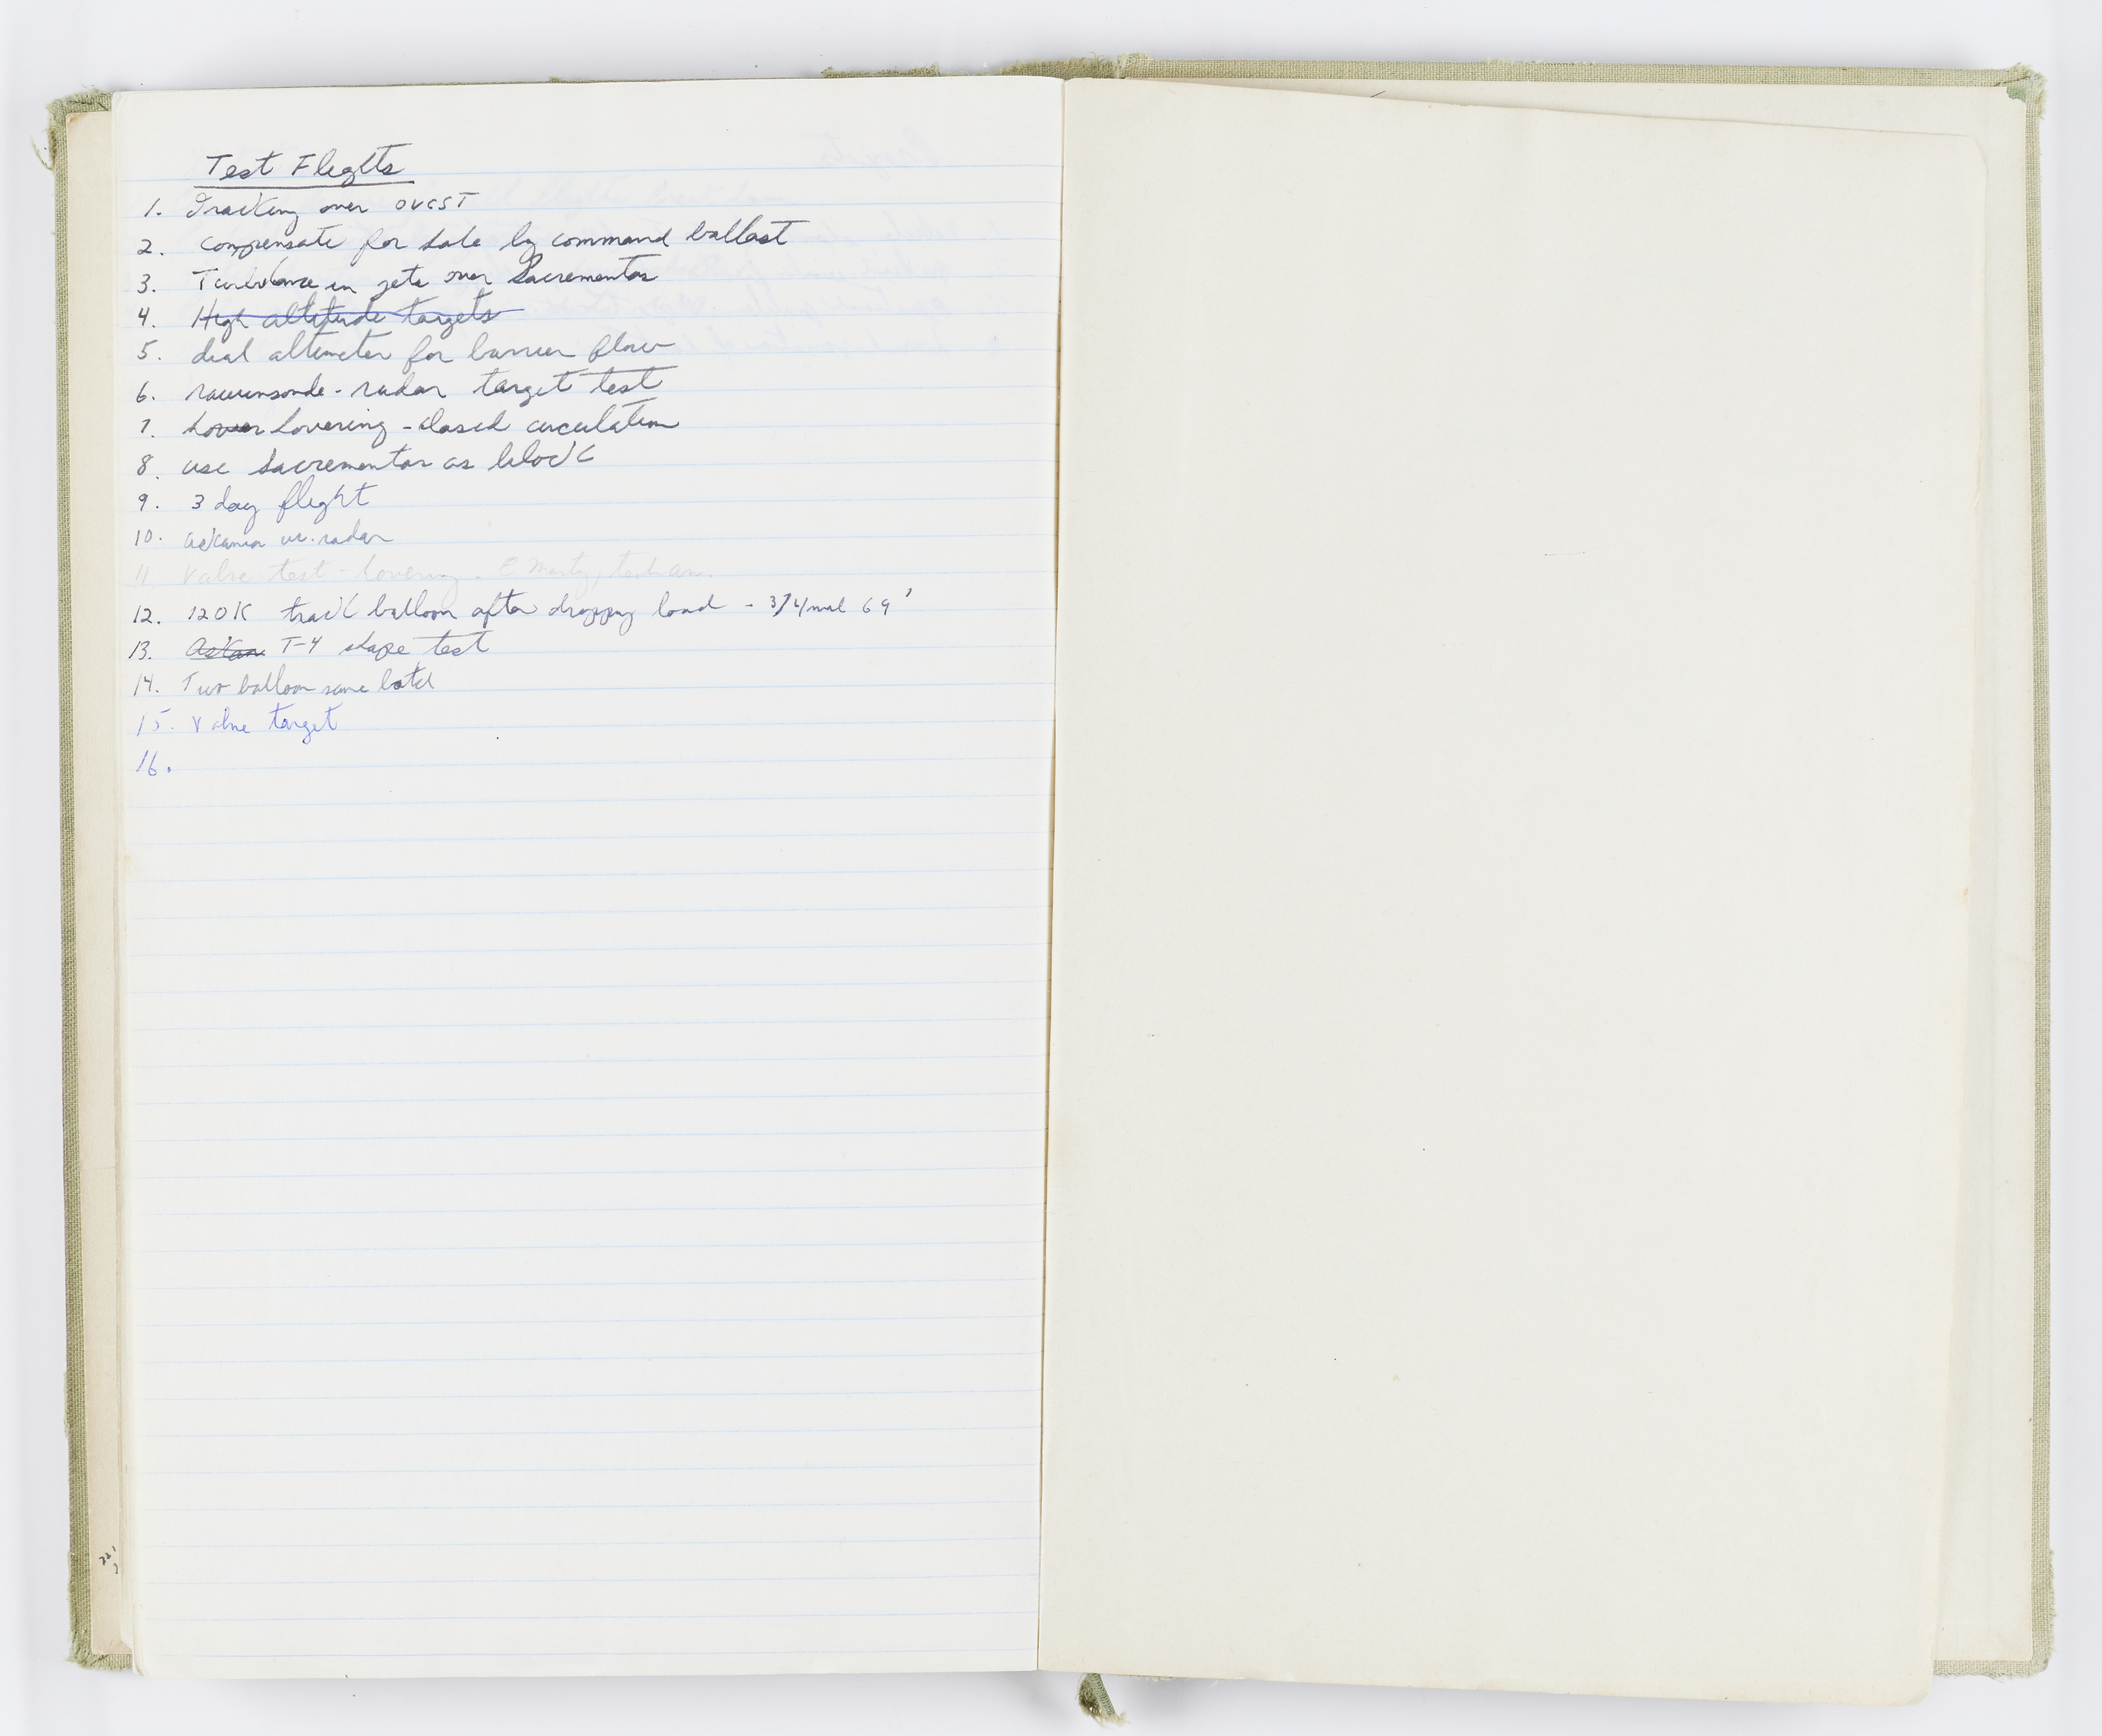 Test Flights
1. Tracking over OVCST
2. compensate for hole by command ballast
3. Turbulance in jets over Sacrementos
4. High altitude targets
5. dial altimeter for barrier flow
6. rawinsonde - radar target test
7. hover hovering - closed circulation
8. use Sacrementos as block
9. 3 day flight
10. askania vs. radar
11 Valve test - hovering -
12. 120K track balloon after dropping load - 3/4 mil 69'
13. Askan T-4 shape test
14. Two balloon same batch
15. Valve target
16.